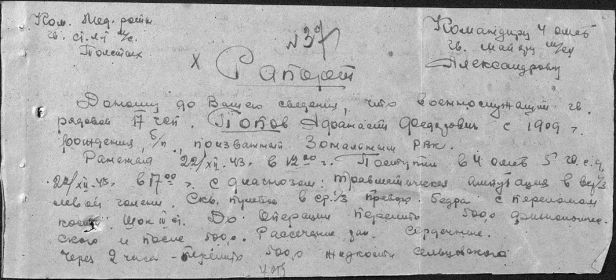 Ком. Мед. роты
гв. ст. л-т м/с.
Командиру 4 омсб
гв. майору м/сл
Александрову
№ 37
х
Рапорт
Доношу до Вашего сведения, что военнослужащий гв.
рядовой Попов Афанасий Федорович с 1909 г.
рождения, б/п, призванный РВК.
Раненый 22/XII-43 г. в 12 00 г. Поступил в 4 омсб 5 гв. с. д.
22/XII-43 г. в 17 00 г. с диагнозом: травматическая ампутация в в/3
левой голени. Ск. правого бедра с переломом
кости. Шок III ст. До операции перелито 500,0 физиологиче-
ского и после 500,0. Рассечение ран. Сердечные.
Через 2 часа - перелито 500,0 жидкости